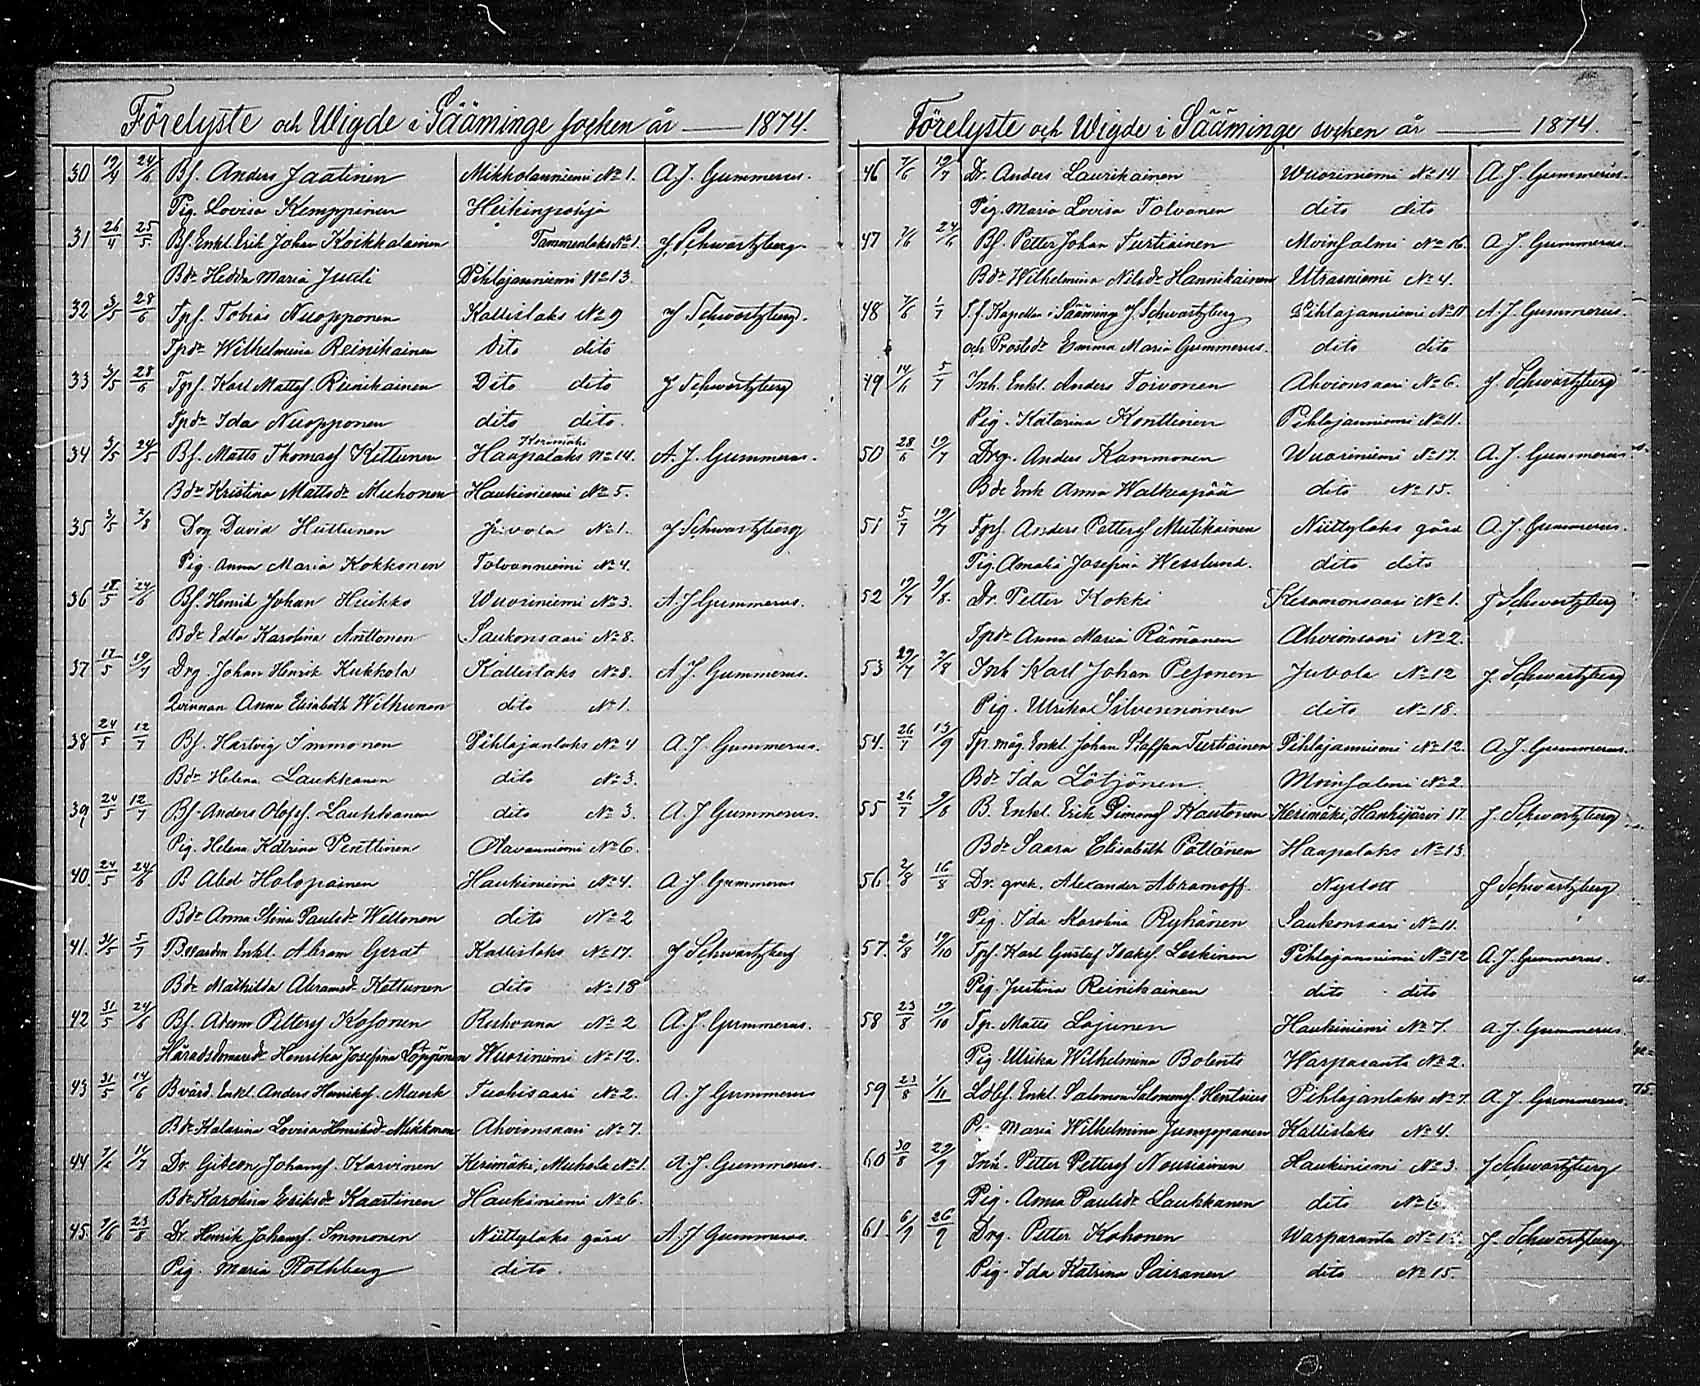 Förelyste och Wigde i Sääminge socken år — 1874.
30 19/4 24/6 Bf. Anders Jaatinen Mikkolanniemi No 1. A. J. Gummerus.
Pig. Lovisa Kemppinen Heikinpohja
31 26/4 25/5 Bf. Enkl. Erik Johan Koikkalainen Tammenlaks No 1. J. Schwartzberg
Bdr Hedda Maria Juuli Pihlajanniemi No 13.
32 3/5 28/6 Tpf. Tobias Nuopponen Kallislaks No 9 J. Schwartzberg.
Tpdr Wilhelmina Reinikainen Dito dito
33 3/5 28/6 Tpf. Karl Mattsf. Reinikainen Dito dito J Schwartzberg
Tpdr Ida Nuopponen dito dito.
34 3/5 24/5 Bf. Matts Thomasf Kettunen Kerimäki Haapalaks No 14. A. J. Gummerus.
Bdr Kristina Mattsdr Muhonen Haukiniemi No 5.
35 3/5 2/8 Drg David Huttunen Juvola No 1. J Schwartzberg
Pig. Anna Maria Kokkonen Tolvanniemi No 4.
36 17/5 24/6 Bf. Henrik Johan Huikko Wuoriniemi No 3. A. J Gummerus.
Bdr Edla Karolina Anttonen Saukonsaari No 8.
37 17/5 19/7 Drg. Johan Henrik Kukkola Kallislaks No 8. A. J. Gummerus.
Qvinnan Anna Elisabeth Wilhunen dito No 1.
38 24/5 12/7 Bf. Hartvig Immonen Pihlajanlaks No 4 A. J. Gummerus.
Bdr Helena Laukkanen dito No 3.
39 24/5 12/7 Bf. Anders Olofsf. Laukkanen dito No 3. A. J Gummerus.
Pig. Helena Katrina Penttinen Olavanniemi No 6.
40. 24/5 24/6 B Abel Holopainen Haukiniemi No 4. A J. Gummerus
Bdr Anna Stina Paulsdr Weltonen dito No 2
41. 31/5 5/7 Enkl. Abram Gerat Kallislaks No 17. J Schwartzberg
Bdr Mathilda Abramsdr Kettunen dito No 18
42 31/5 24/6 Bf. Adam Pettersf Kosonen Ruhvana No 2 A. J. Gummerus.
Häradsdomaredr Henrika Josefina Löppönen Wuoriniemi No 12.
43 31/5 14/6 Bvärd. Enkl. Anders Henriksf. Munk Tuohisaari No 2. A. J Gummerus
Bdr Katarina Lovisa Henriksdr Mikkonen Ahvionsaari No 7.
44 7/6 14/7 Dr. Gideon Johansf. Karvinen Kerimäki, Muhola No 1. A. J. Gummerus.
Bdr Karolina Eriksdr Kaartinen Haukiniemi No 6.
45. 7/6 23/8 Dr. Henrik Johansf. Immonen Niittylaks gård A. J Gummerus.
Pig. Maria Rothberg dito.
Förelyste och Wigde i Sääminge socken år — 1874.
46 7/6 19/7 Dr. Anders Laurikainen Wuoriniemi No 14 A. J Gummerus.
Pig. Maria Lovisa Tolvanen dito dito
47 7/6 24/6 Bf. Petter Johan Turtiainen Moinsalmi No 16. A. J. Gummerus.
Bdr Wilhelmina Nilsdr Hannikainen Utrasniemi No 4.
48 7/6 1/7 S. f. Kapellan i Sääming J. Schwartzberg Pihlajanniemi No 11 A. J. Gummerus.
och Prostdr Emma Maria Gummerus. dito dito
49 14/6 5/7 Inh. Enkl. Anders Toivonen Ahvionsaari No 6. J. Schwartzberg
Pig. Katarina Konttinen Pihlajanniemi No 11.
50 28/6 19/7 Drg. Anders Kammonen Wuoriniemi No 17. A. J. Gummerus
Bdr Enk Anna Walkeapää dito No 15.
51 5/7 19/7 Tpf. Anders Pettersf Mutikainen Niittylaks gård A. J. Gummerus.
Pig. Amalia Josefina Wesslund. dito dito
52 19/7 9/8. Dr. Petter Kokki Kesamonsaari No 1. J Schwartzberg
Tpdr Anna Maria Rämänen Ahvionsaari No 2.
53 29/7 2/8 Inh Karl Johan Pesonen Juvola No 12 J. Schwartzberg
Pig. Ulrika Silvennoinen dito No 18.
54. 26/7 13/9 Tp. måg Enkl. Johan Staffan Turtiainen Pihlajanniemi No 12. A. J. Gummerus.
Bdr Ida Lötjönen. Moinsalmi No 2.
55 26/7 9/8 B. Enkl. Erik Simonsf Kautonen Kerimäki, Hankijärvi 17. J. Schwartzberg
Bdr Saara Elisabeth Pöllänen Haapalaks No 13.
56. 2/8 16/8 Dr. grek. Alexander Abramoff. Nyslott J Schwartzberg
Pig. Ida Karolina Ryhänen Saukonsaari No 11.
57. 2/8 19/10 Tpf. Karl Gustaf Isaksf. Leskinen Pihlajanniemi No 12 A. J. Gummerus.
Pig. Justina Reinikainen dito dito
58 23/8 19/10 Tp. Matts Lajunen Haukiniemi No 7. A. J. Gummerus.
Pig. Ulrika Wilhelmina Bolentz Warparanta No 2.
59 23/8 1/11 Enkl. Salomon Salomonsf. Hentzius Pihlajanlaks No 7. A. J. Gummerus.
Maria Wilhelmina Jumppanen Kallislaks No 4.
60 30/8 29/9 Inh. Petter Pettersf Nousiainen Haukiniemi No 3. J Schwartzberg
Pig. Anna Paulsdr Laukkanen dito No 6
61. 6/9 26/9 Drg. Petter Kohonen Warparanta No 1 J. Schwartzberg.
Pig. Ida Katrina Sairanen dito No 15.